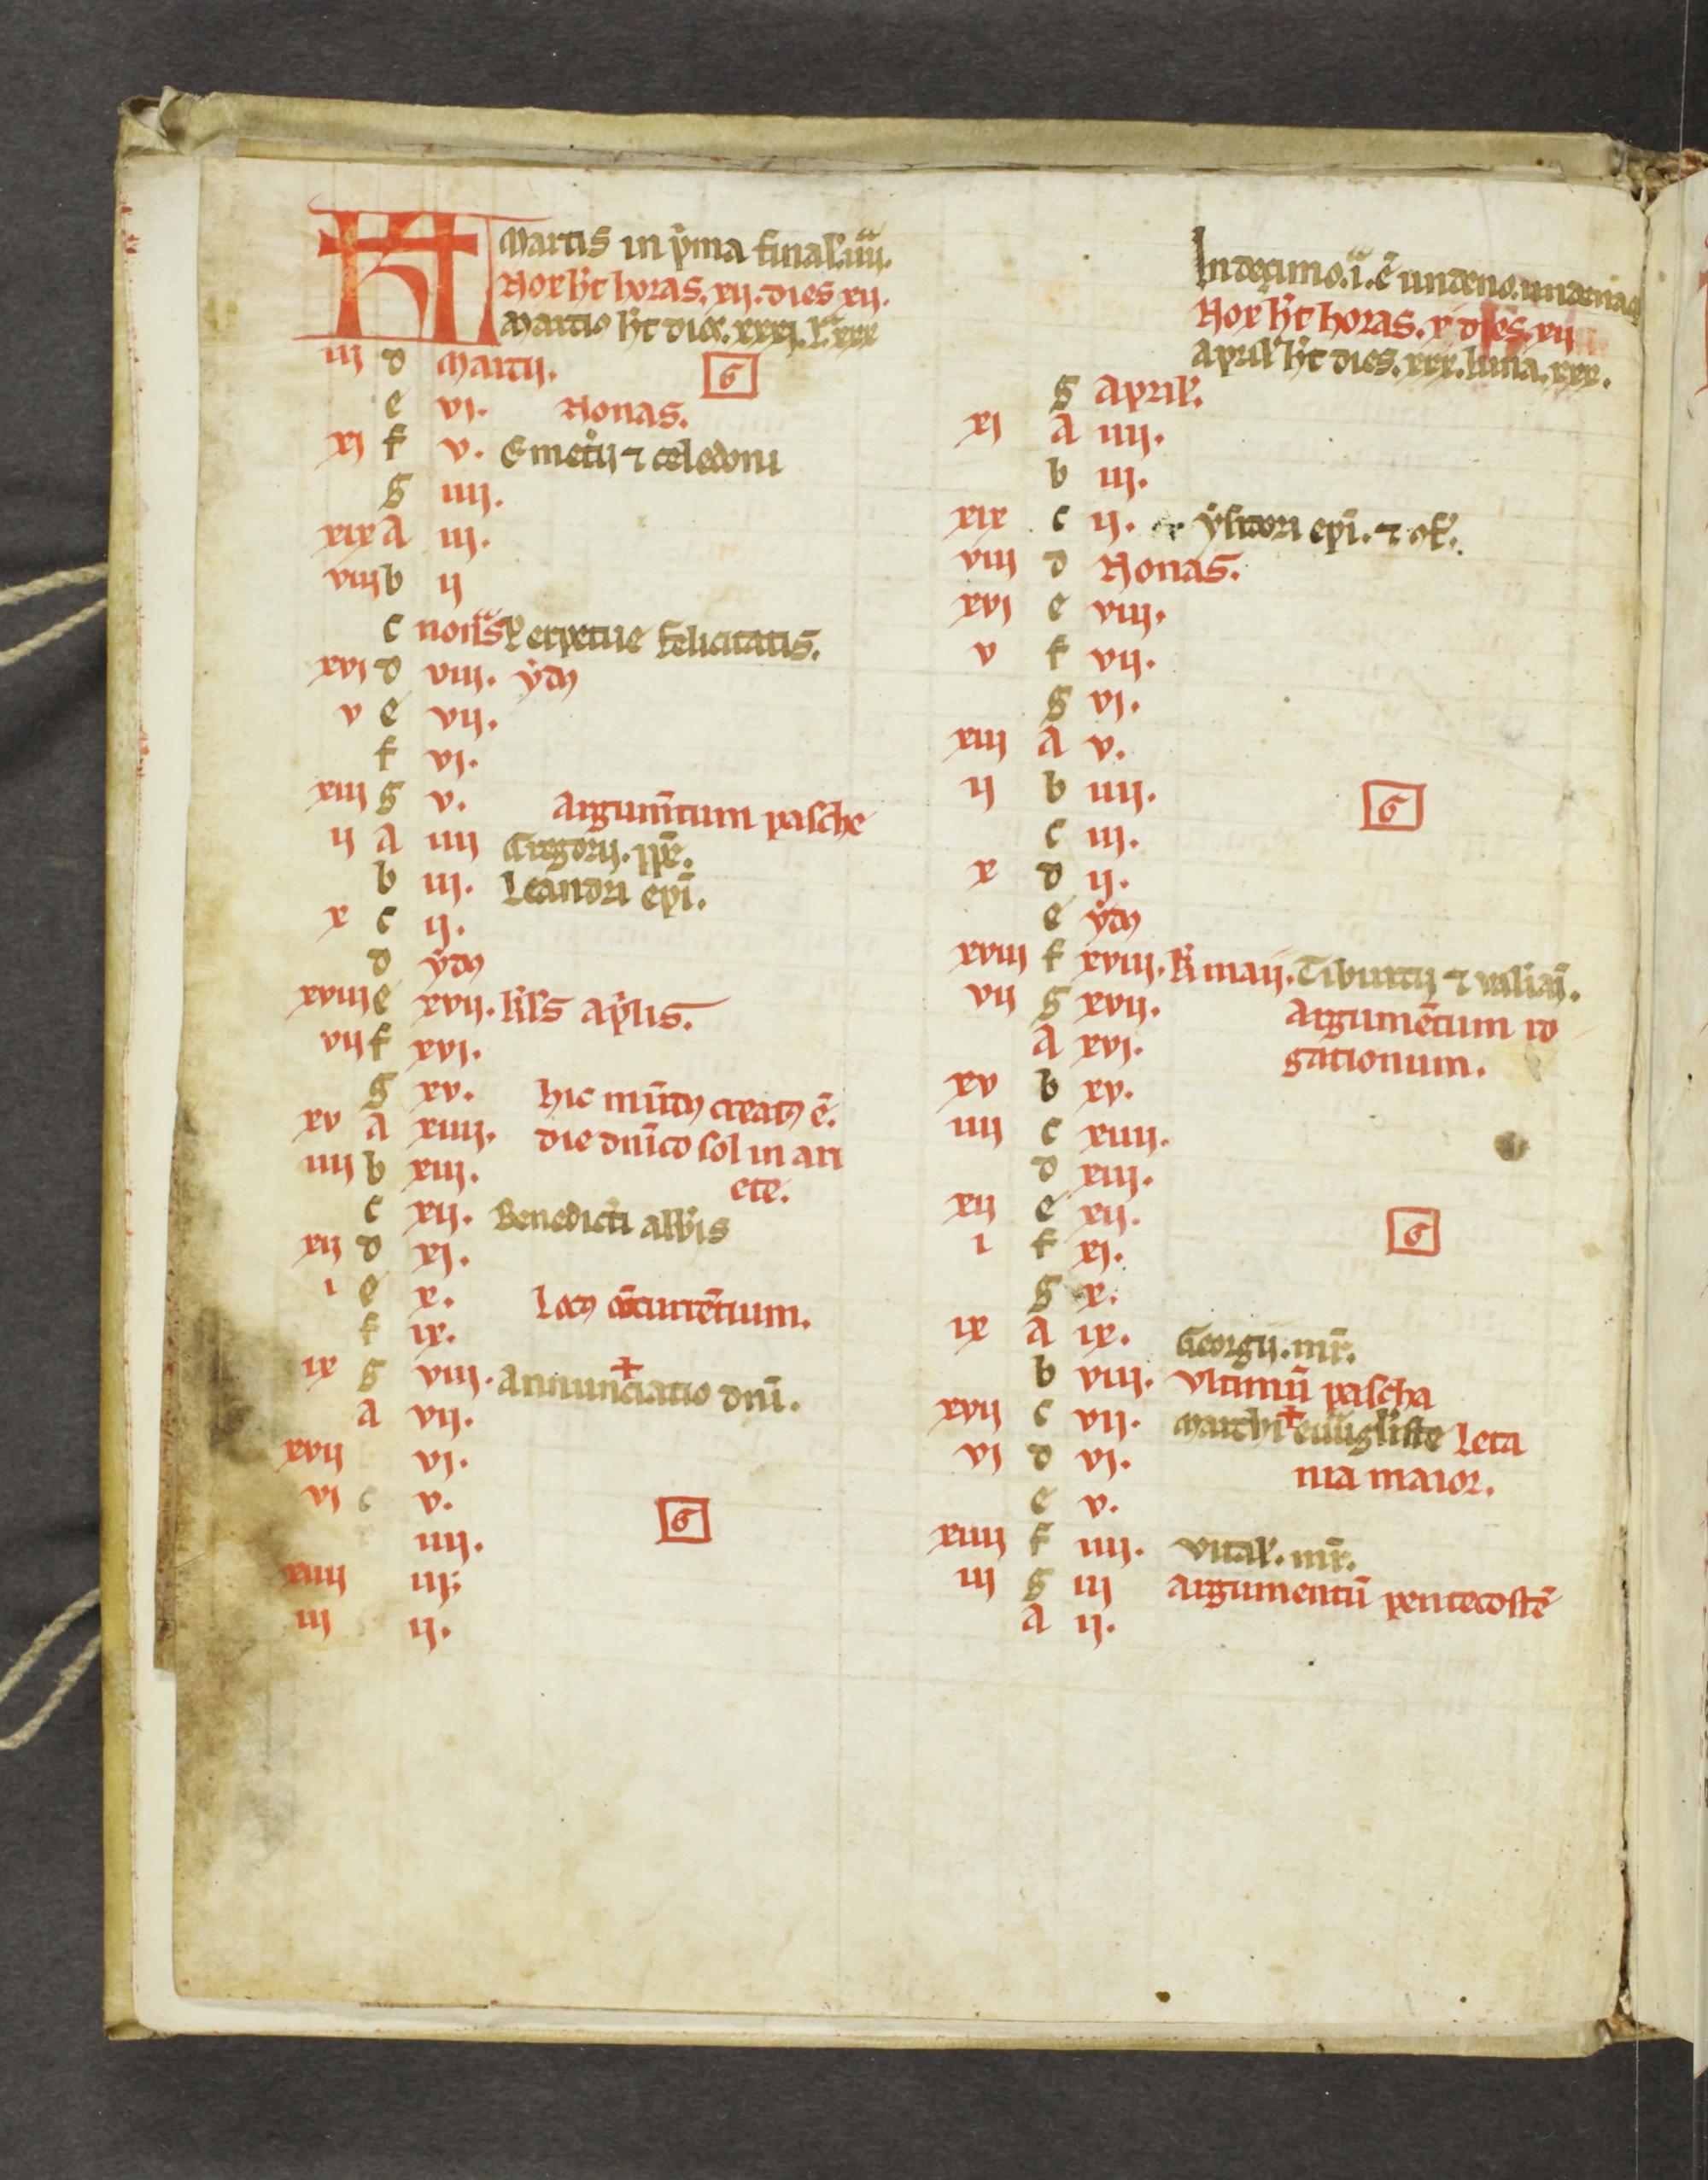 KL Martis in p̾ma final̾. iiii.ᵃ
Nox h̾t horas. xii. dies xii.
Martio h̾t dies. xxxi. l̾. xxx
iii d Martii. 6
e vi. Nonas.
xi f v. Emet̾ii ⁊ celedoni
g iiii.
xix A iii.
viii b ii
c nonas Perpetue felicitatis.
xvi d viii. ydꝰ
v e vii.
f vi.
xiii g v. Argum̄tum pasche
ii A iiii Gregorii. pp̄.
b iii. Leandri ep̄i.
x c ii.
d ydꝰ
xviii e xvii. kl̾s ap̾lis.
vii f xvi.
g xv. hic mūdꝰ creatꝰ ē.
xv A xiiii. die dn̄ico sol in ari
iiii b xiii. ete.
c xii. Benedicti abb̾is
xii d xi.
i e x. Locꝰ ꝯcurrētium.
f ix.
ix g viii. Annunciatio dn̄i.
A vii.
xvii vi.
vi c v.
iiii. 6
xiiii iii.
iii ii.
In decimo. i.ᵃ ē undeno.
Nox h̾t horas. x dies. xii
April̾ h̾t dies. xxx. luna. xxx.
g April̾.
xi A iiii.
b iii.
xix c ii. ysidori ep̄i. ⁊ ꝯf̾.
viii d Nonas.
xvi e viii.
v f vii.
g vi.
xiii A v.
ii b iiii. 6
c iii.
x d ii.
e ydꝰ
xviii f xviii. kl̾ maii. Tiburtii ⁊ val̾iai̾.
vii g xvii. Argumētum ro
A xvi. gationum.
xv b xv.
iiii c xiiii.
d xiii.
xii e xii. 6
i f xi.
g x.
ix A ix. Georgii. mr̄.
b viii. Vltimū pascha
xvii c vii. Marchi euug̾liste Leta
vi d vi. nia maior.
e v.
xiiii f iiii. Vital̾. mr̄.
iii g iii Argumentū pentecostē
A ii.